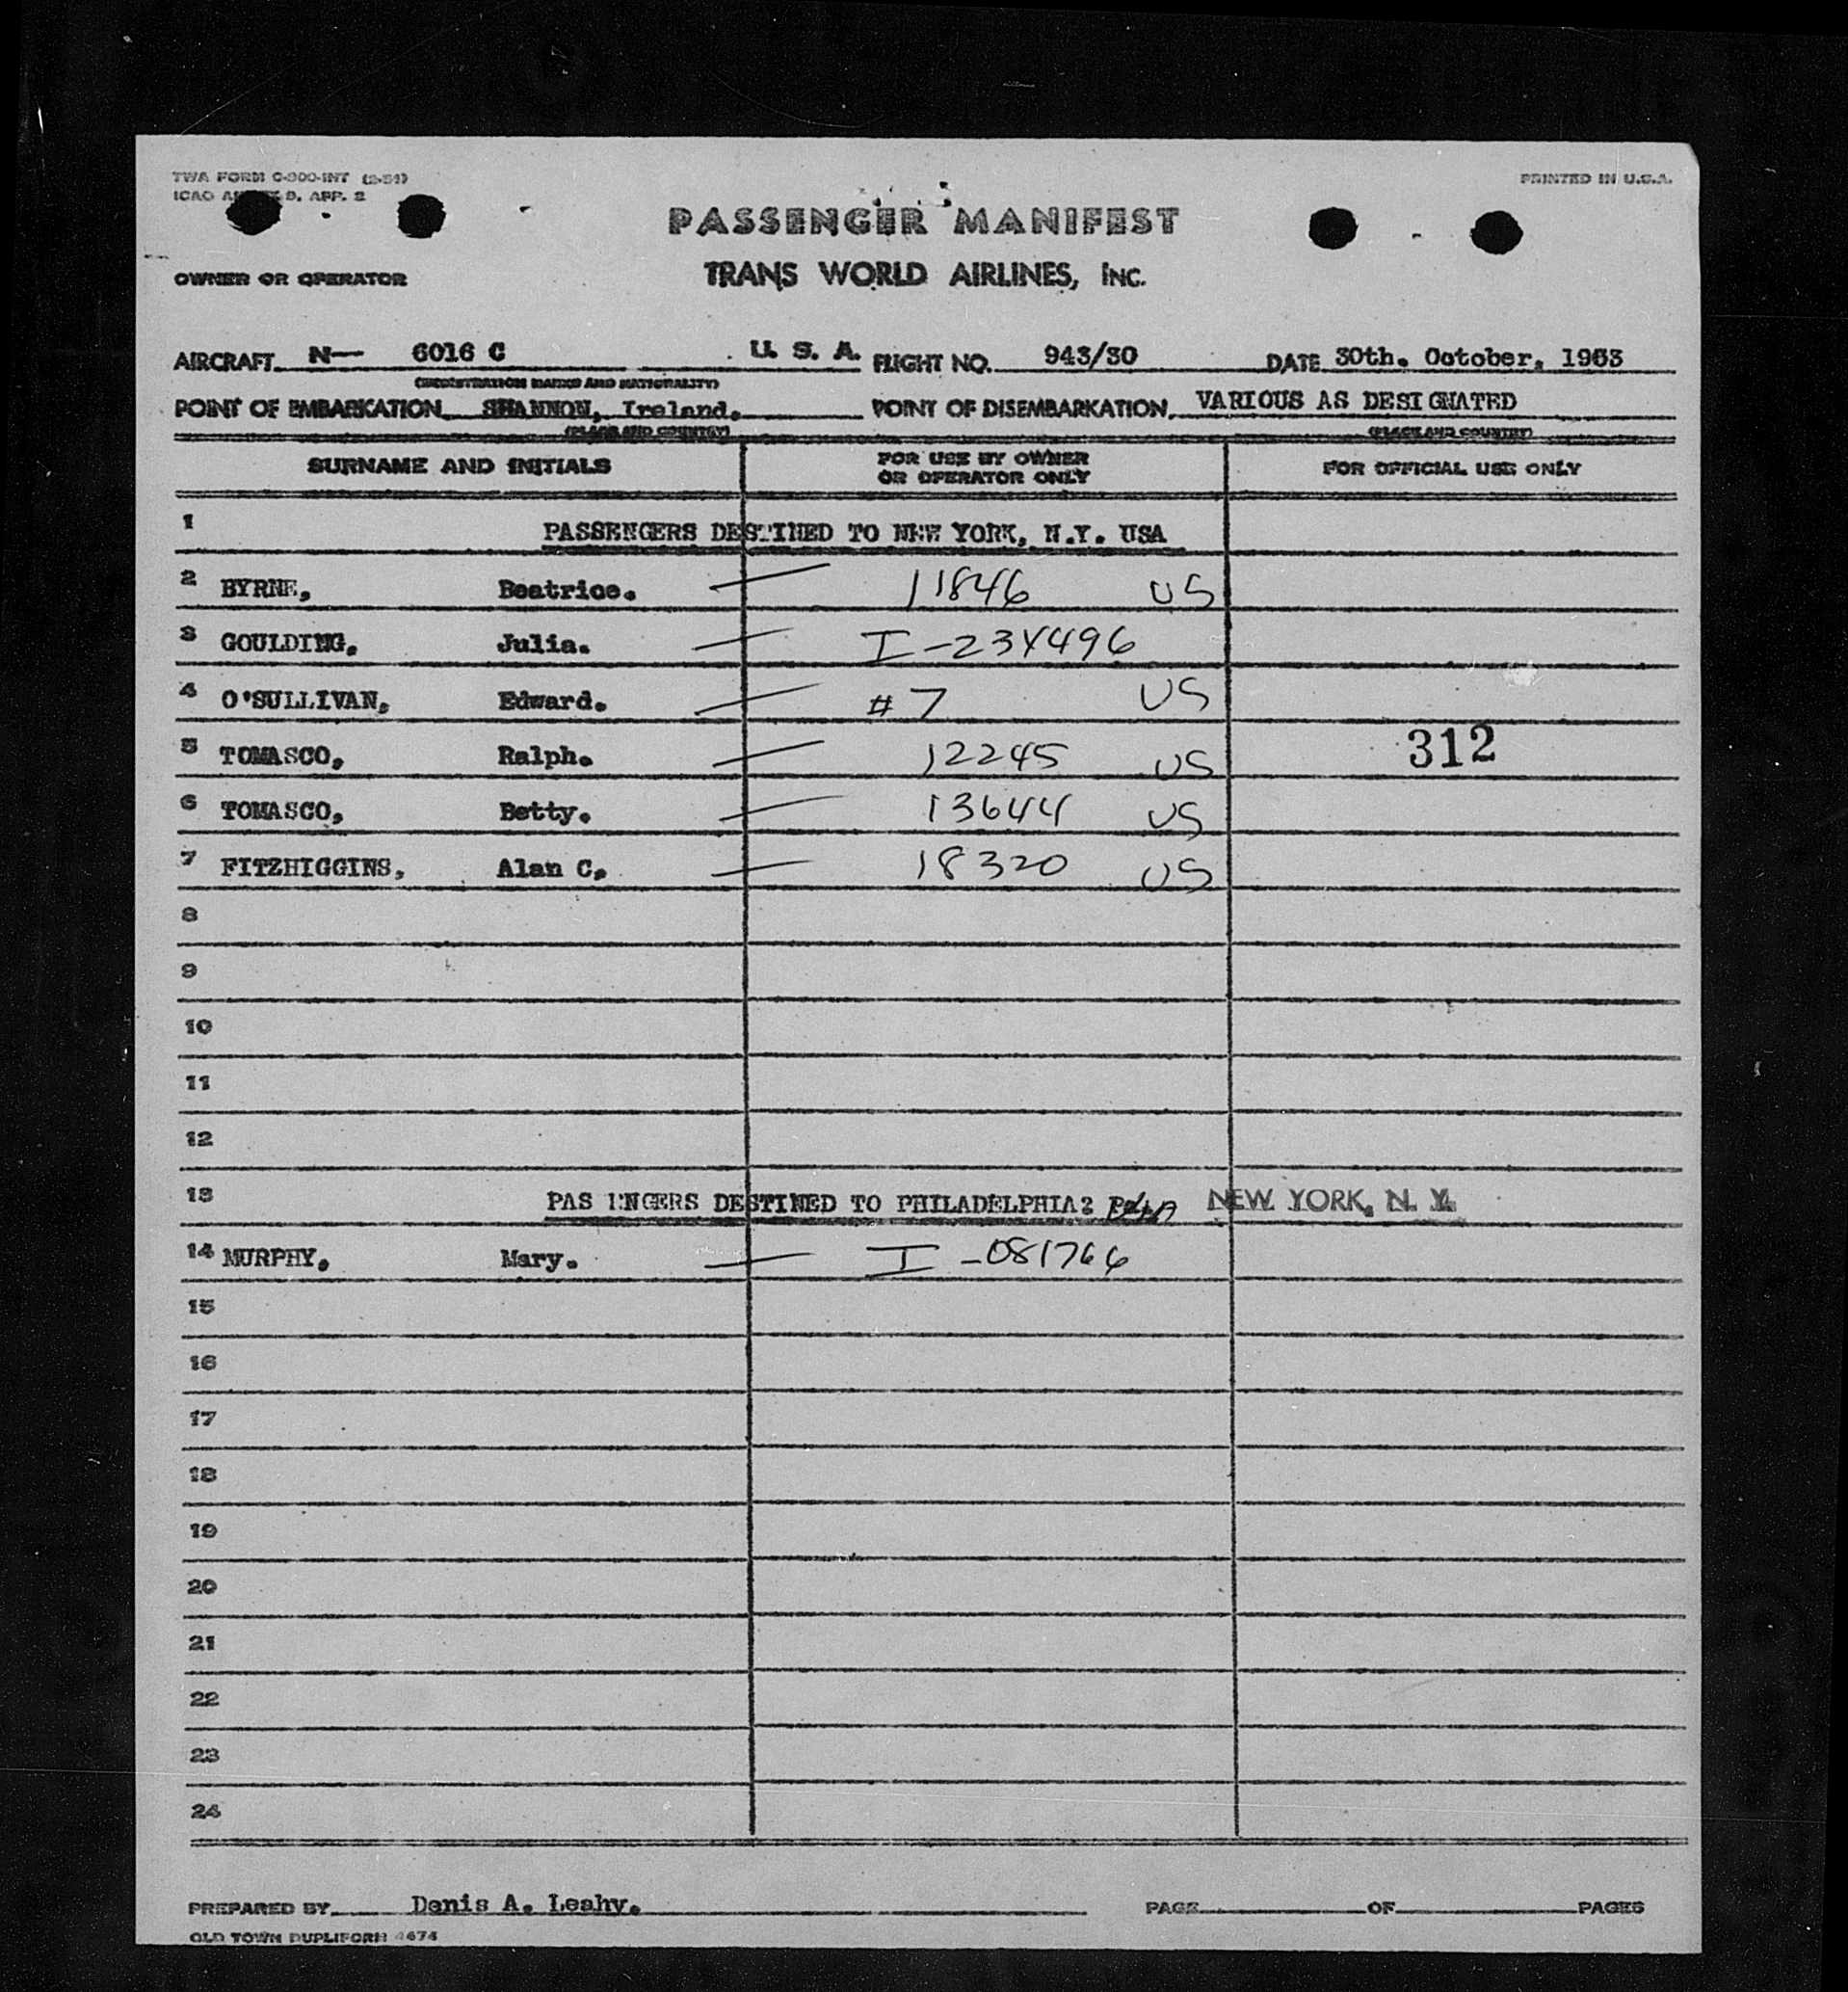 TWA FORM C-300-INT (2-51)
PRINTED IN U.S.A.
ICAO 9, APP. 2
PASSENGER MANIFEST
OWNER OR OPERATOR
TRANS WORLD AIRLINES, INC.
AIRCRAFT N— 6016 C U. S. A. FLIGHT NO. 943/30 DATE 30th. October, 1953
(REGISTRATION MARKS AND NATIONALITY)
POINT OF EMBARKATION SHANNON, Ireland. POINT OF DISEMBARKATION VARIOUS AS DESIGNATED
(PLACE AND COUNTRY) (PLACE AND COUNTRY)
SURNAME AND INITIALS FOR USE BY OWNER OR OPERATOR ONLY FOR OFFICIAL USE ONLY
1 PASSENGERS DESTINED TO NEW YORK, N.Y. USA
2 BYRNE, Beatrice. — 11846 US
3 GOULDING, Julia. — I-234496
4 O'SULLIVAN, Edward. — #7 US
5 TOMASCO, Ralph. — 12245 US 312
6 TOMASCO, Betty. — 13644 US
7 FITZHIGGINS, Alan C. — 18320 US
8
9
10
11
12
13 PAS ENGERS DESTINED TO PHILADELPHIA? NEW YORK, N. Y.
14 MURPHY, Mary. — I-081766
15
16
17
18
19
20
21
22
23
24
PREPARED BY Denis A. Leahy. PAGE OF PAGES
OLD TOWN DUPLIFORM 4674